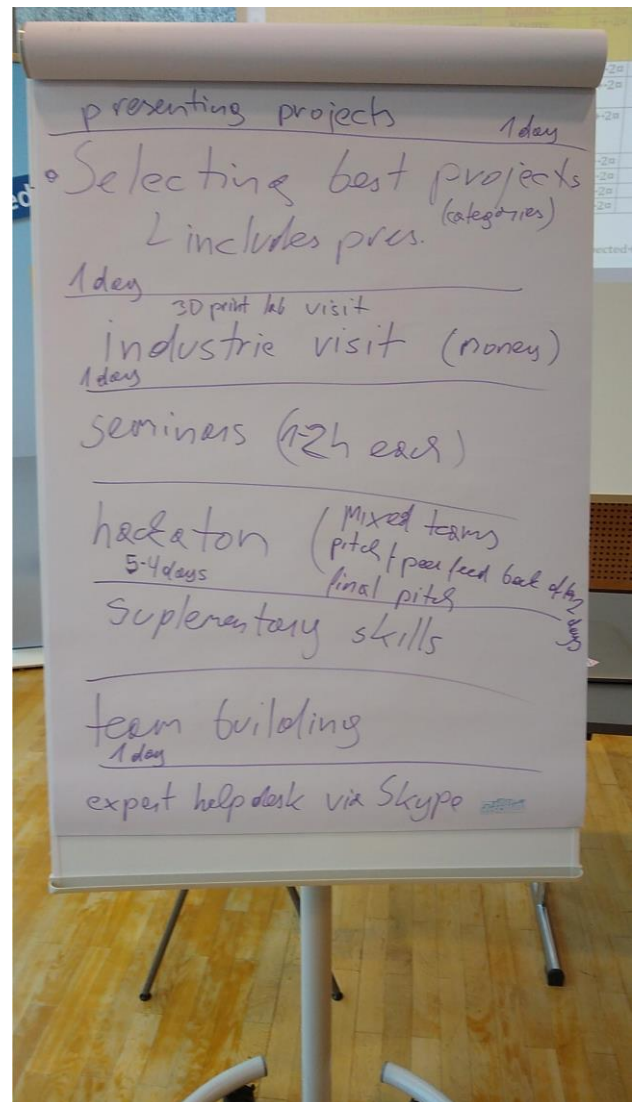 presenting projects 1day
Selecting best projects
(categories)
includes pres.
1day
3D print lab visit
industrie visit (money)
1day
seminars (1-2h each)
hackaton (Mixed teams
pitch + peer feed back after 2 days
final pitch
5-4days
suplementary skills
team building
1day
expert helpdesk via Skype